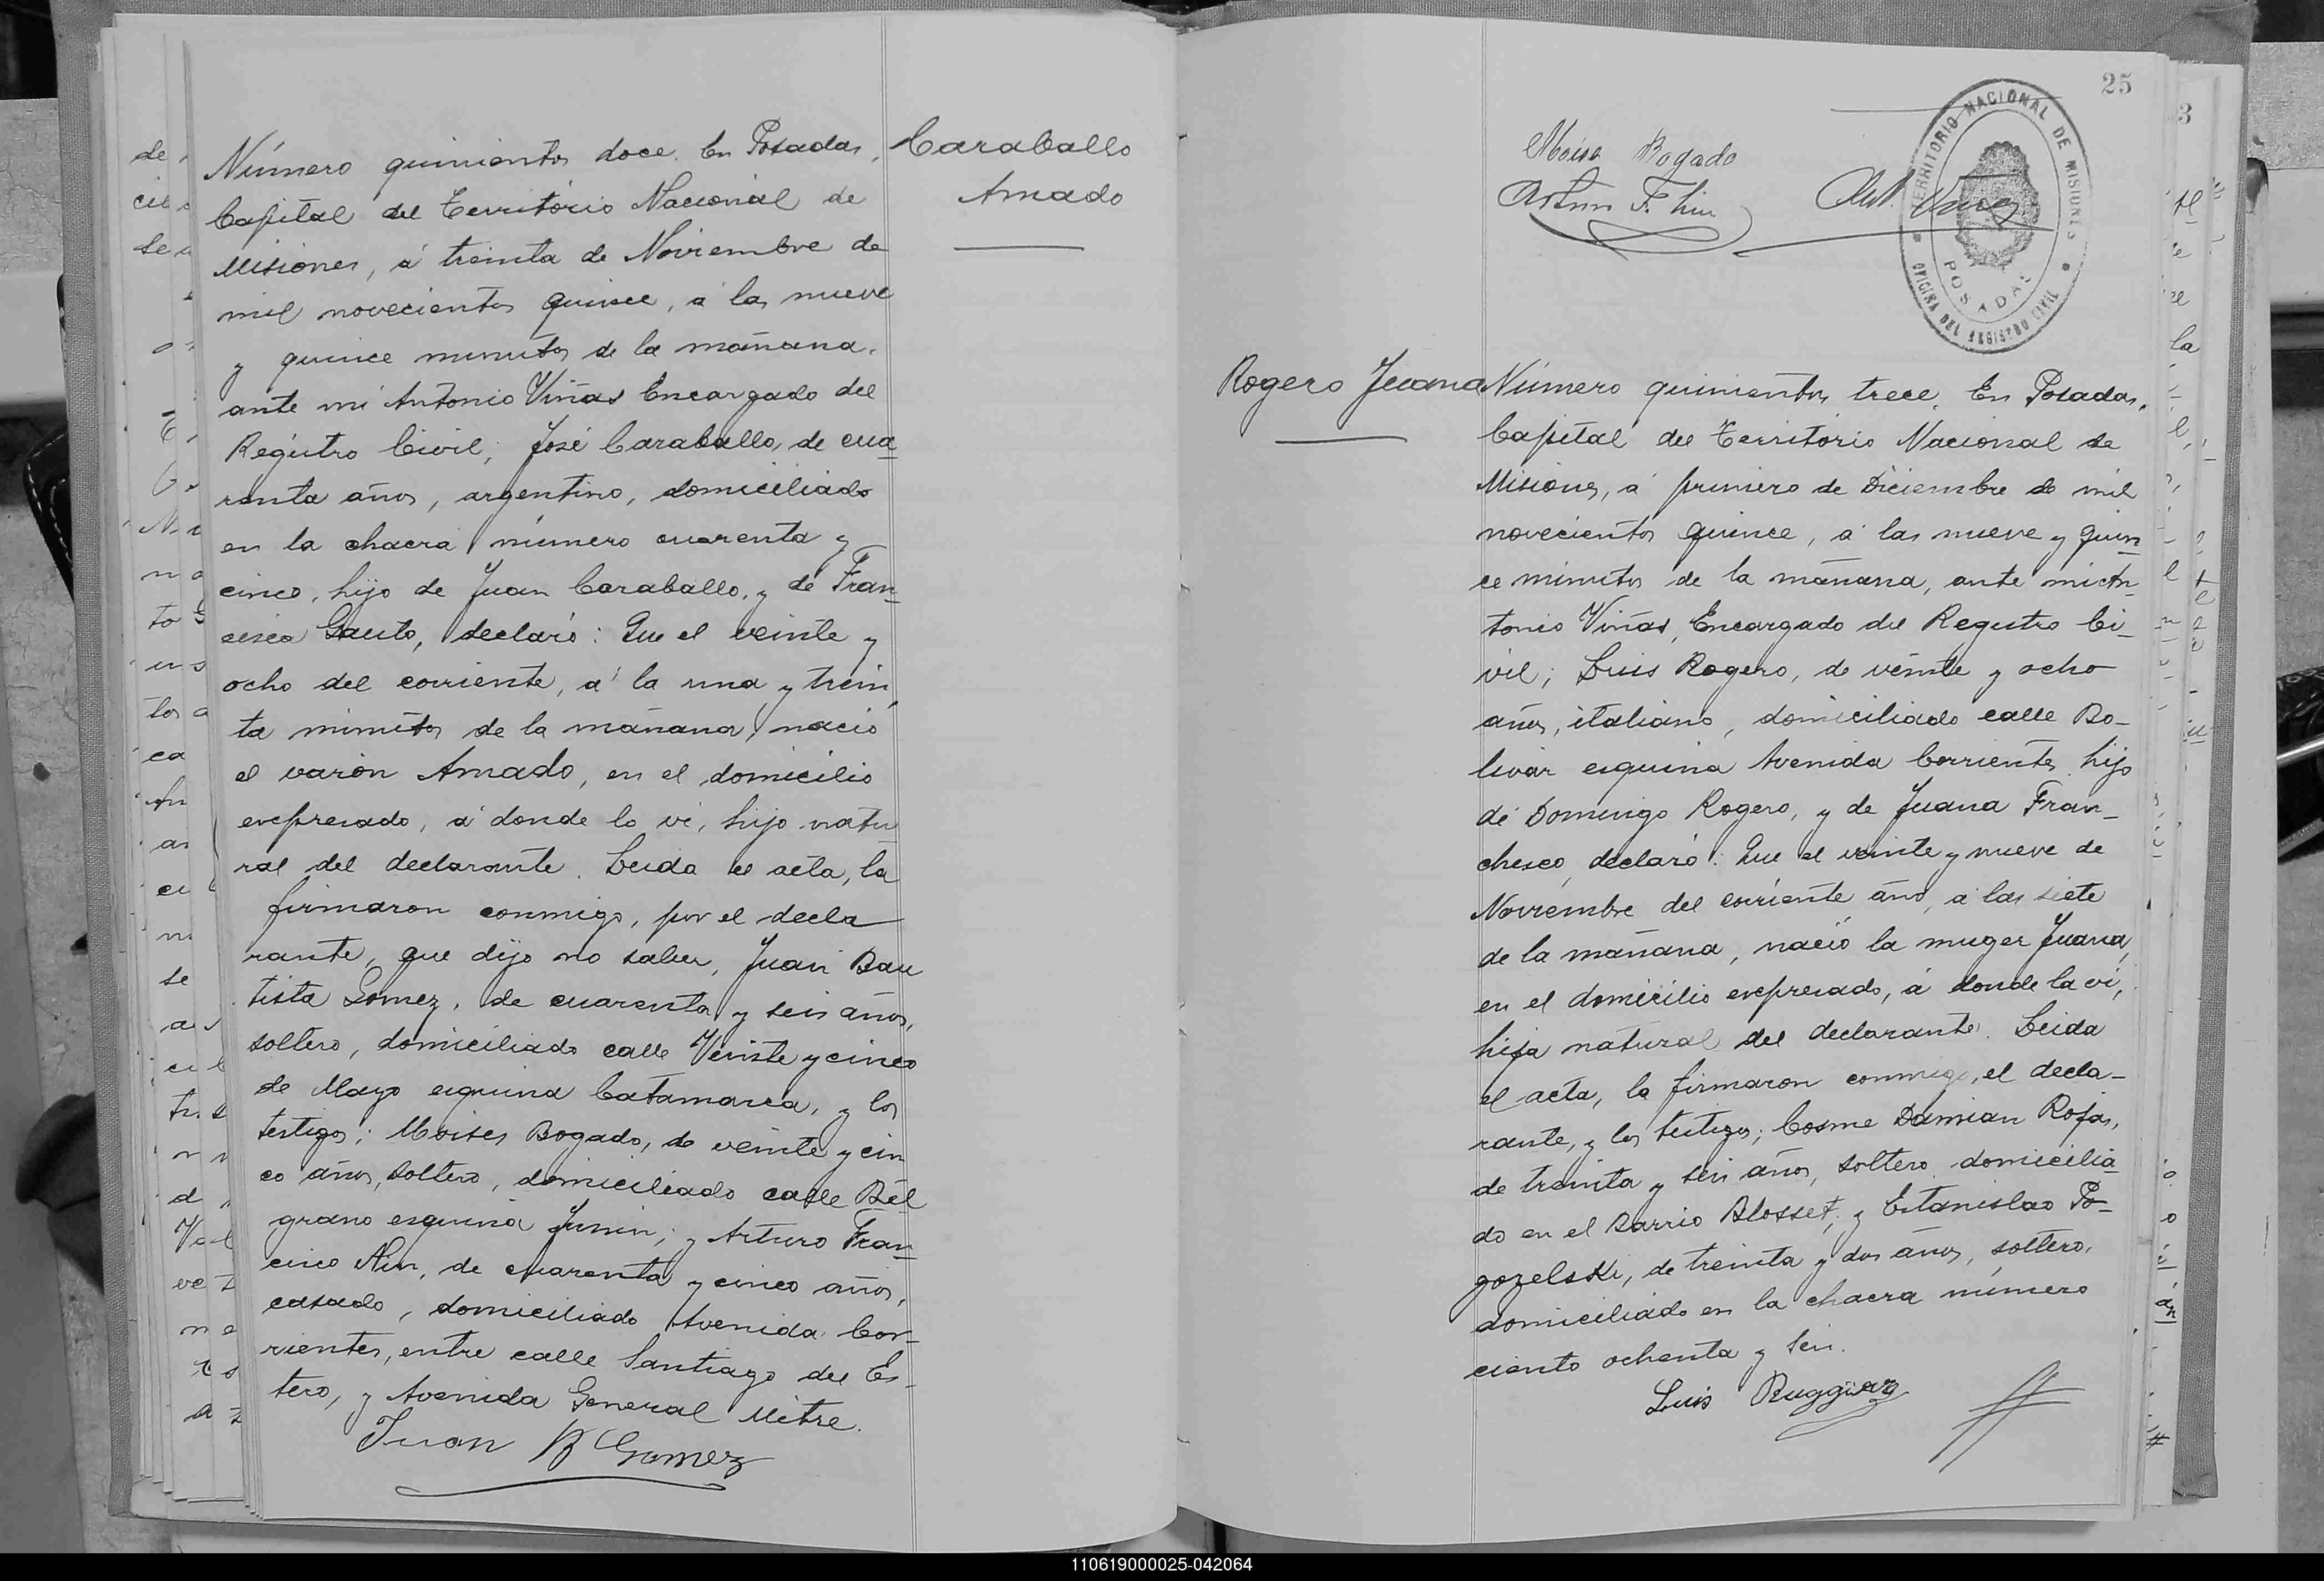 Número quinientos doce. En Posadas,
Capital del Territorio Nacional de
Misiones, á treinta de Noviembre de
mil novecientos quince, á las nueve
y quince minutos de la mañana,
ante mi Antonio Viñas Encargado del
Registro Civil; José Caraballo, de cua
renta años, argentino, domiciliado
en la chacra número cuarenta y
cinco, hijo de Juan Caraballo, y de Fran_
cisca Gauto, declaró: Que el veinte y
ocho del corriente, á la una y trein
ta minutos de la mañana, nació
el varón Amado, en el domicilio
expresado, á donde lo ví, hijo natu
ral del declarante. Leida el acta, la
firmaron conmigo, por el decla
rante, que dijo no saber, Juan Bau
tista Gomez, de cuarenta y seis años,
soltero, domiciliado calle Veinte y cinco
de Mayo esquina Catamarca, y los
testigos; Moises Bogado, de veinte y cin
co años, soltero, domiciliado calle Bel
grano esquina Junin; y Arturo Fran_
cisco Nin, de cuarenta y cinco años,
casado, domiciliado Avenida Cor_
rientes, entre calle Santiago del Es_
tero, y Avenida General Mitre.
Juan B Gomez
Caraballo
Amado
25
Moises Bogado
Arturo F. Nin
Ant. Viñas
TERRITORIO NACIONAL DE MISIONES
POSADAS
OFICINA DEL REGISTRO CIVIL
Rogero Juana
Número quinientos trece. En Posadas,
Capital del Territorio Nacional de
Misiones, á primero de Diciembre de mil
novecientos quince, á las nueve y quin_
ce minutos de la mañana, ante mi An_
tonio Viñas, Encargado del Registro Ci_
vil; Luis Rogero, de veinte y ocho
años, italiano, domiciliado calle Bo_
livar esquina Avenida Corrientes, hijo
de Domingo Rogero, y de Juana Fran_
chesco, declaró: Que el veinte y nueve de
Noviembre del corriente año, á las siete
de la mañana, nació la muger Juana,
en el domicilio expresado, á donde la ví,
hija natural del declarante. Leida
el acta, la firmaron conmigo, el decla_
rante, y los testigos; Cosme Damian Rojas,
de treinta y seis años, soltero, domicilia_
do en el Barrio Blosset; y Estanislao Po_
gozelski, de treinta y dos años, soltero,
domiciliado en la chacra número
ciento ochenta y seis.
Luis Ruggero
110619000025-042064